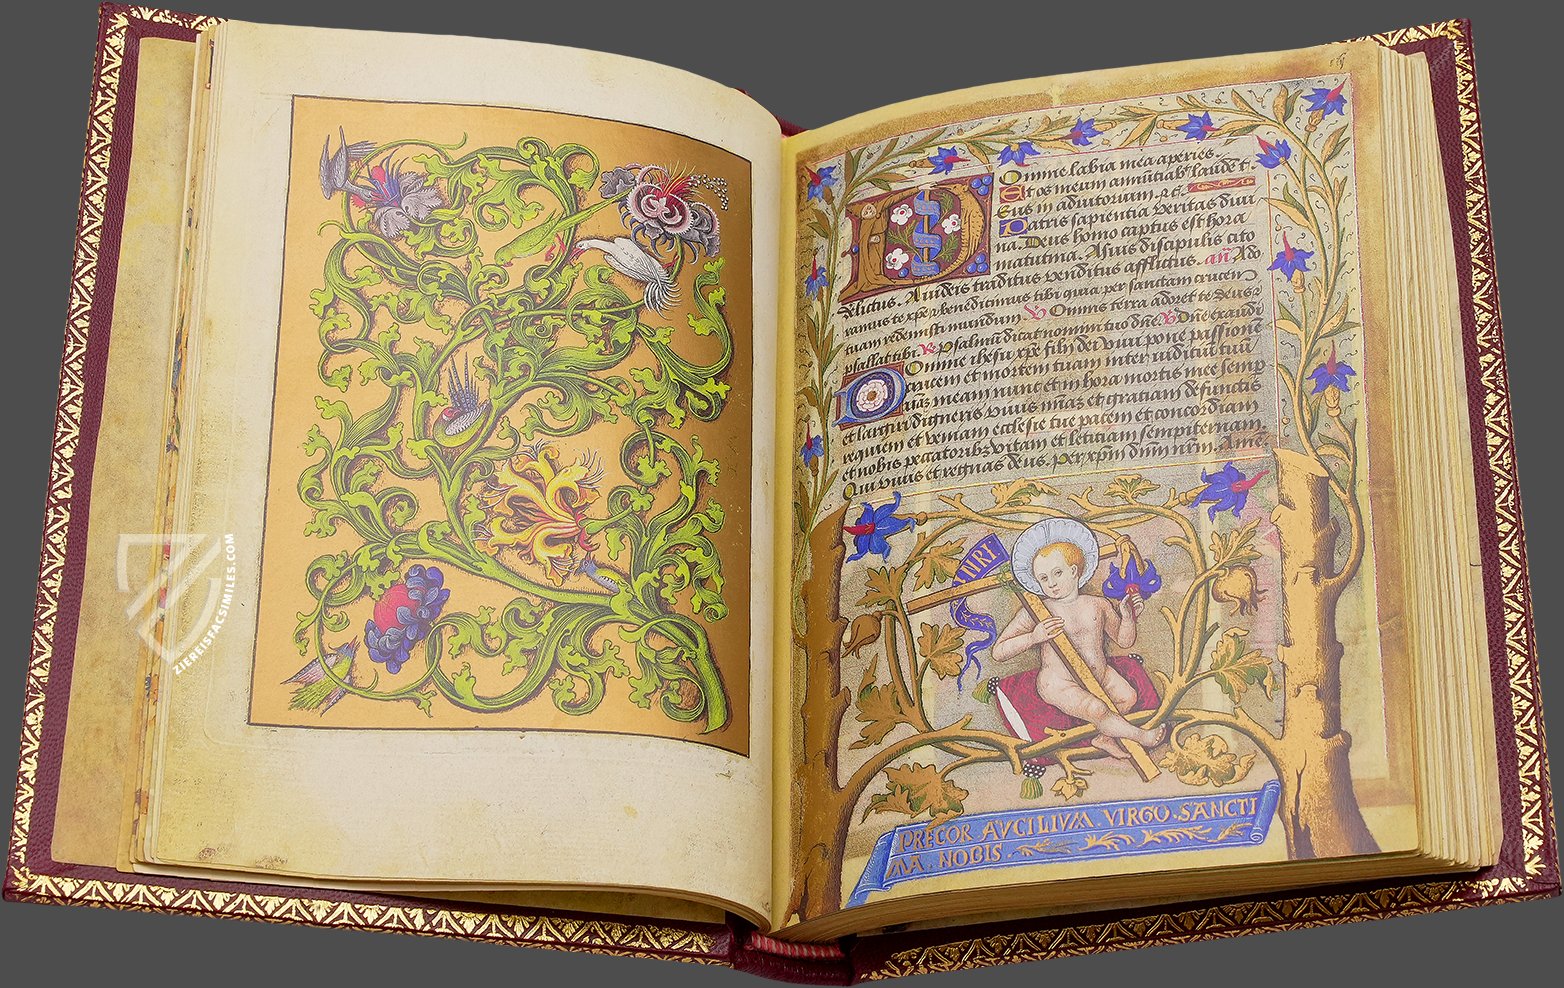 Omine labia mea aperies.
Et os meum annūtiab' laudē t.
Eus in adiutorium .ꝛc̄.
Patris sapientia veritas diui
na. Deus homo captus est hora
matutina. A suis discipulis cito
delictus. A iudeis traditus venditus afflictus. an̄ Ado
ramus te xp̄e ⁊ benedicimus tibi quia per sanctam crucem
tuam redemisti mundum ℣ Omnis terra adoret te deus ⁊
psallat tibi. ℞ psalmū dicat nomini tuo dn̄e. ℣ Dn̄e exaudi
Omine ihesu xp̄e fili dei viui pone passionē
crucem et mortem tuam inter iuditiū tuū
meam nunc et in hora mortis mee semp
et largiri digneris viuis mīaz et gratiam defunctis
requiem et veniam ecclesie tue pacem et concordiam
et nobis peccatoribz vitam et letitiam sempiternam.
Qui viuis et regnas deus. per xp̄m dn̄m nr̄m. Amē
PRECOR AVCILIVM VIRGO. SANCTI
MA. NOCIS.
ZIEREISFACSIMILES.COM